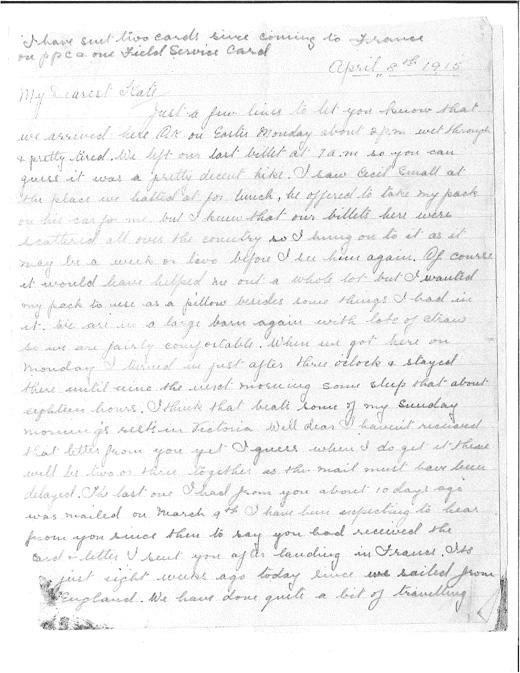 I have sent two cards since coming to France
on ppc & one Field Service Card
April 8th 1915
My Dearest Kate
Just a few lines to let you know that
we arrived here OK on Easter Monday about 2 p.m wet through
& pretty tired. We left our last billet at 7 a.m so you can
guess it was a pretty decent hike. I saw Cecil Small at
the place we halted at for lunch, he offered to take my pack
on his car for me but I knew that our billets here were
scattered all over the country so I hung on to it as it
may be a week or two before I see him again. Of course
it would have helped me out a whole lot but I wanted
my pack to use as a pillow besides some things I had in
it. We are in a large barn again with lots of straw
so we are fairly comfortable. When we got here on
Monday I turned in just after three oclock & stayed
there until nine the next morning some sleep that about
eighteen hours. I think that beats some of my Sunday
mornings rests in Victoria. Well dear I havent received
that letter from you yet I guess when I do get it there
will be two or three together as the mail must have been
delayed. The last one I had from you about 10 days ago
was mailed on March 9th I have been expecting to hear
from you since then to say you had received the
card & letter I sent you after landing in France. Its
just eight weeks ago today since we sailed from
England. We have done quite a bit of travelling